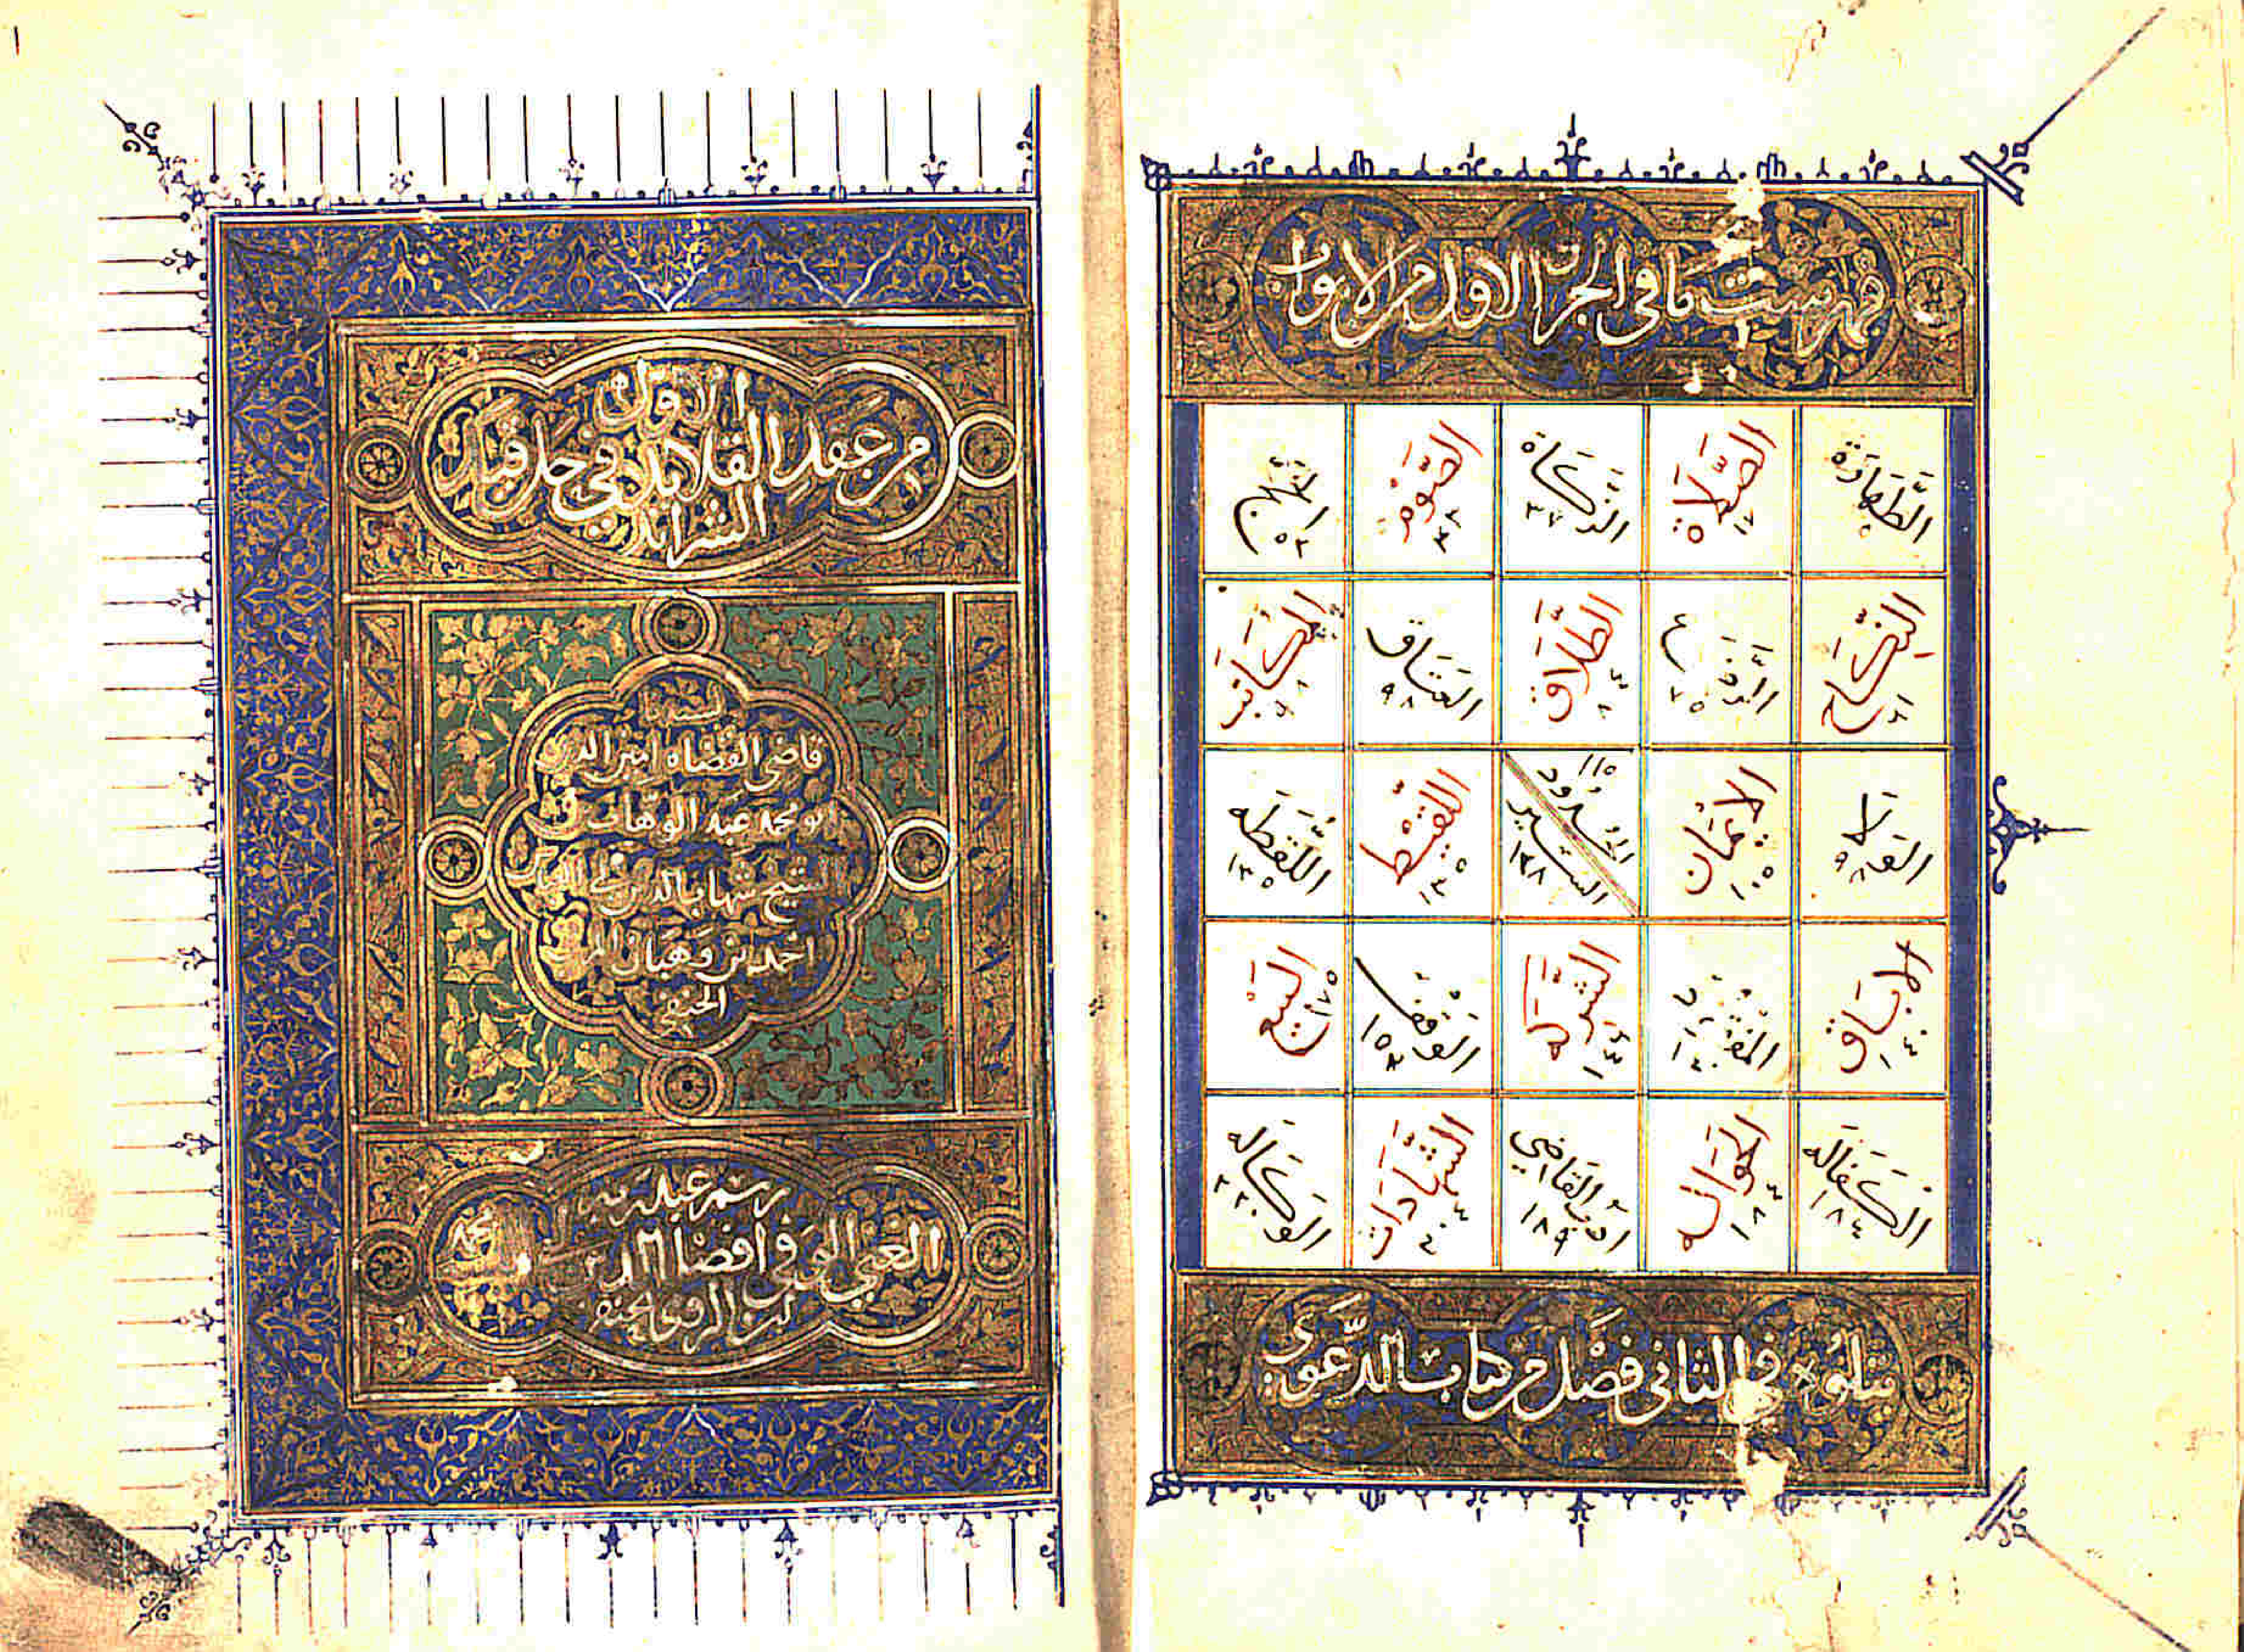 فهرست ما في الجزء الاول من الابواب
الطَّهَارَة
الصَّلَاة ١٧
الزَّكَاة ٣٧
الصَّوْم ٤٣
الحج ٥٢
النِّكَاح
الرَّضَاع ٧٥
الطَّلَاق
العتَاق ٩٨
المُكَاتب
الوَلَا ٩٨
الايمَان ١٠٥
الحُدُود ١١٥
السِّيَر ١٢٨
اللَّقيْط ١٣٥
اللُّقَطَه ١٣٥
الابَاق ١٤٠
المفْقُود
الشركَه ١٤٤
الوَقْف ١٥٣
البَيْع ١٧٥
الكَفَالَه ١٨٤
الحَوَاله
ادب القَاضِي ١٨٩
الشَّهَادَات
الوَكَالَه ٢٢٠
يتلُوُه في الثاني فصْل من كتاب الدَّعوَى
الاول
من عقد القلائد في حل قيد
الشرائد
قاضي القضاه امين الدين
ابو محمد عبد الوهاب بن
الشيخ شهاب الدين
احمد بن وهبان
الحنفي
برسم عبد ربه
الغني الوفي افضل الدين
الحنفي